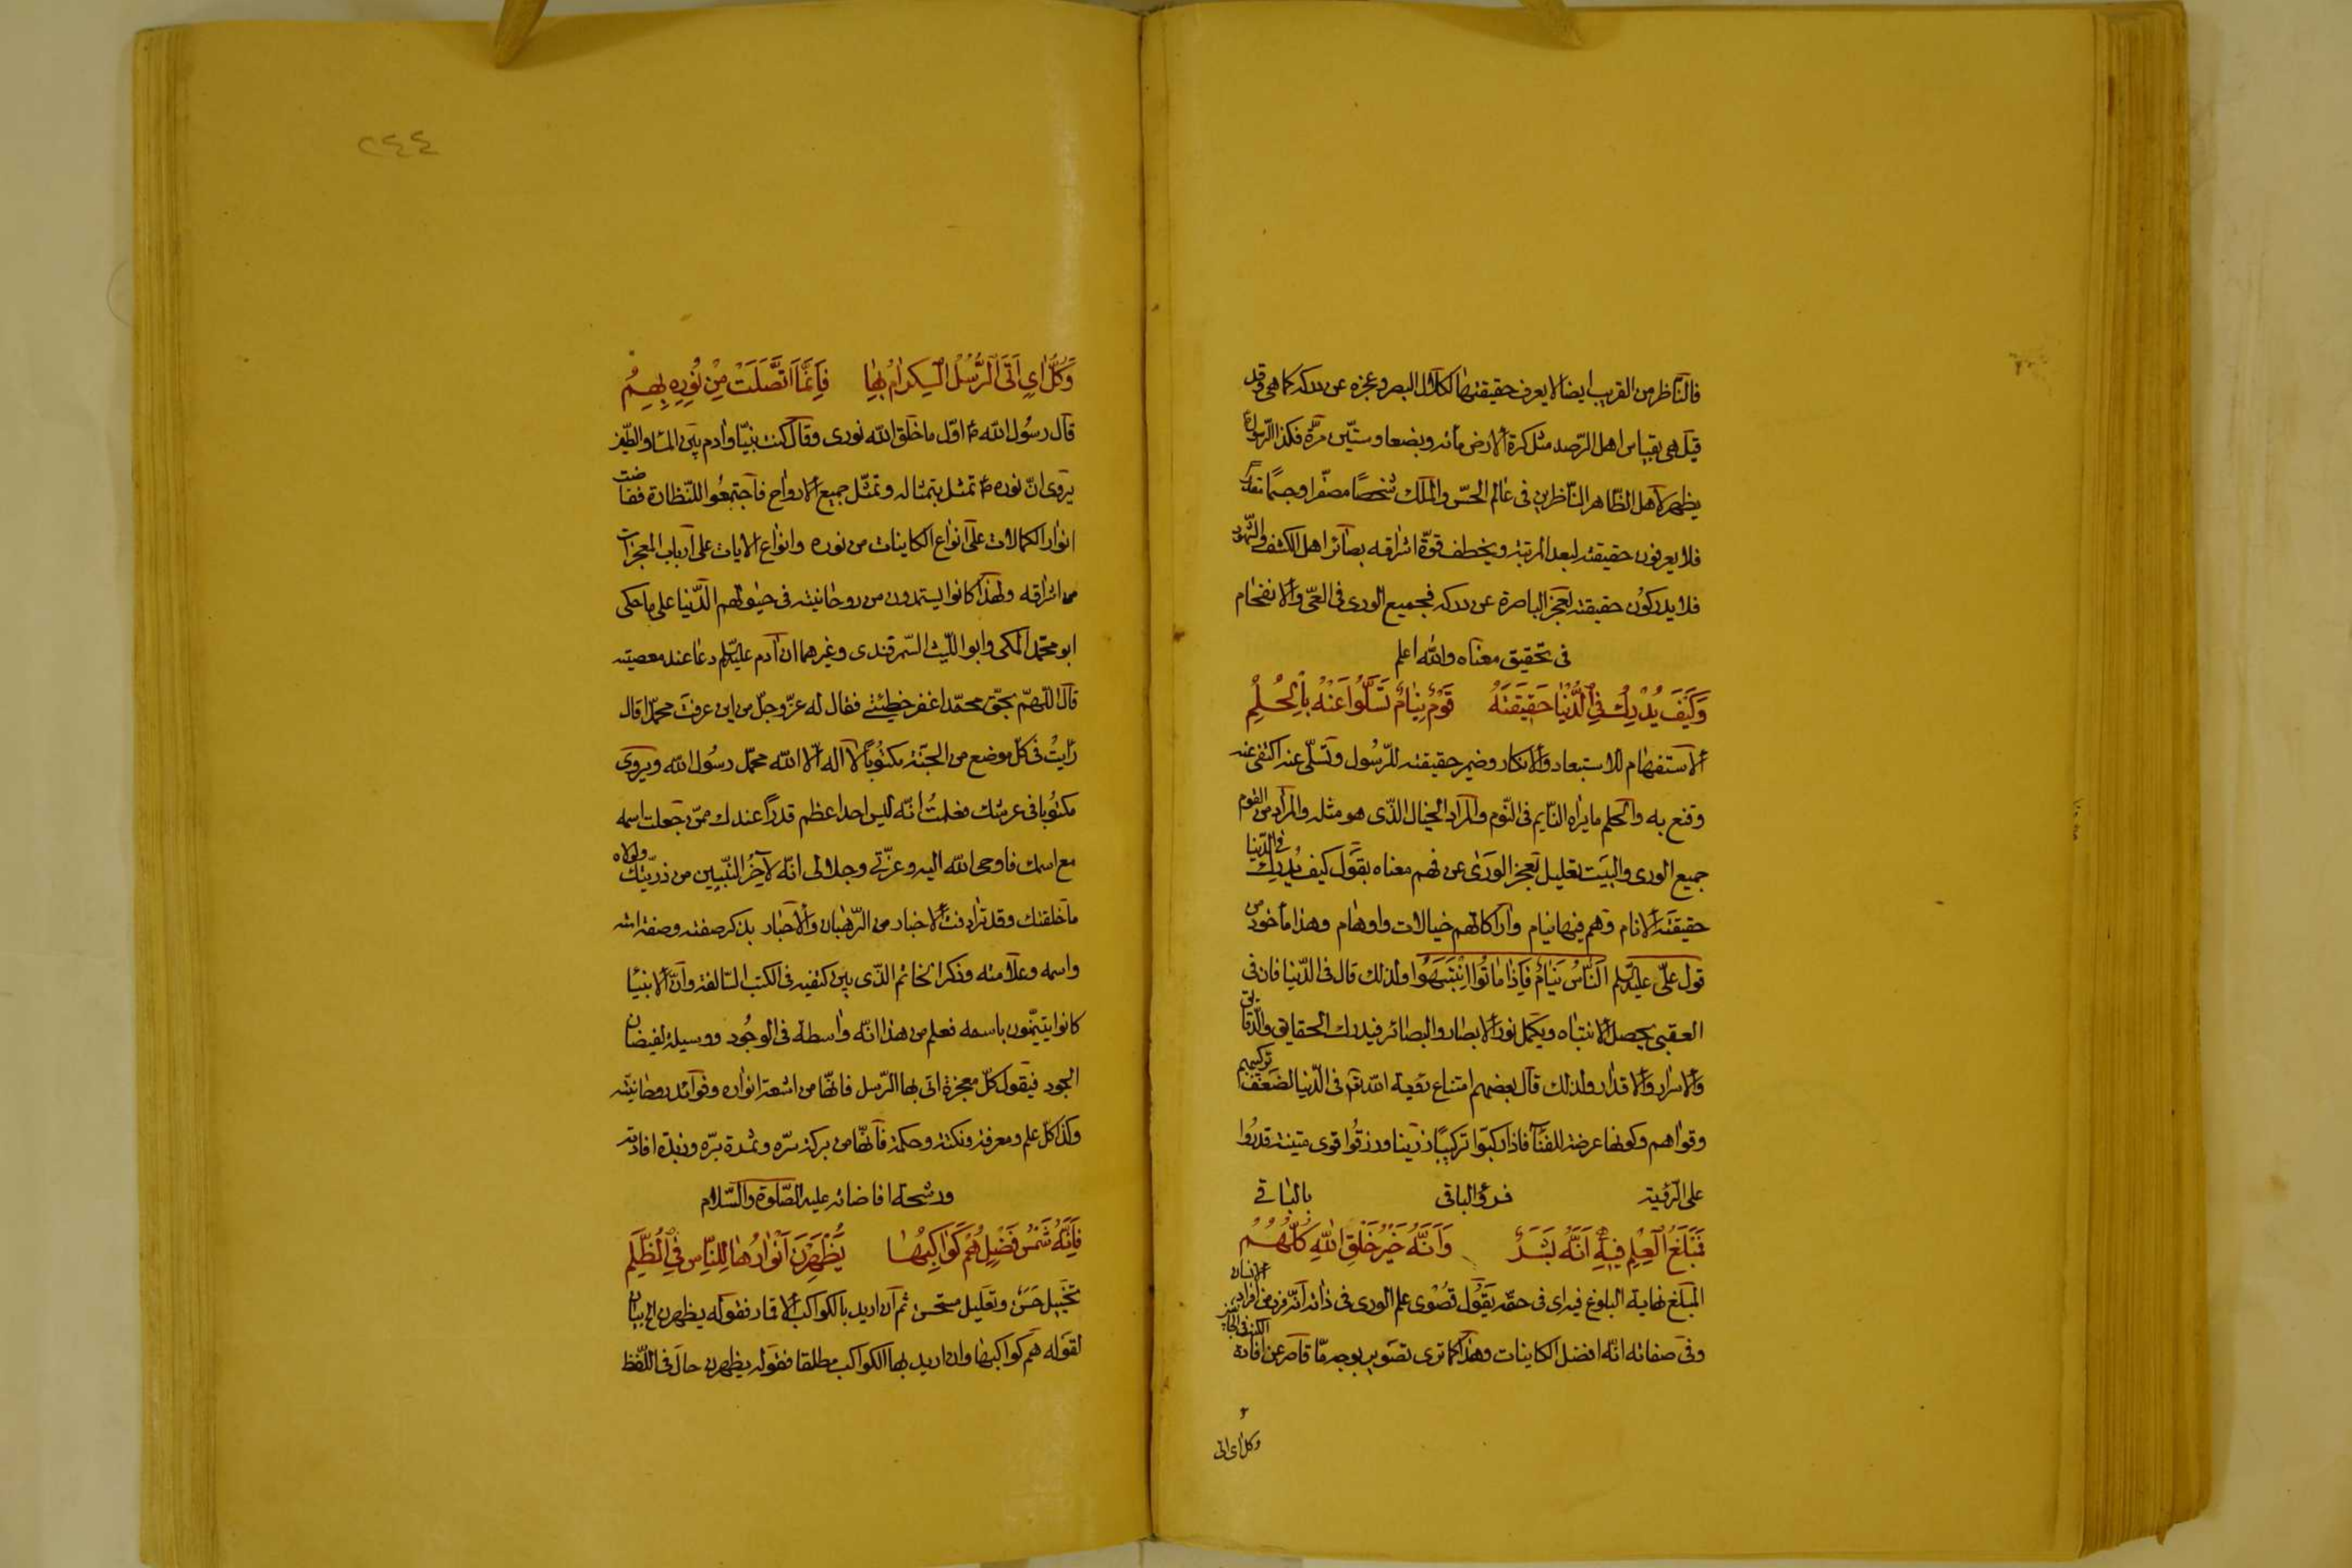 فالناظر من القريب ايضا لا يعرف حقيقتها لكلال البصر وعجزه عن دركه كما هي وقد
قيل هي بقياس اهل الرّصد مثل كرة الارض مائة وبضعا وستّين مرّة فكذا الرّسول ع
يظهر لاهل الظّاهر النّاظرين فى عالم الحسّ والملك شخصًا مصغّرا وجسمًا مقدّرا
فلا يعرفون حقيقته لبعد المرتبة ويخطف قوّة اشراقه بصائر اهل الكشف والشّهود
فلا يدركون حقيقته لعجز الباصرة عن دركه فجميع الورى فى العىّ والانفحام
فى تحقيق معناه والله اعلم
وَكَيْفَ يُدْرِكُ فِى الدُّنْيَا حَقِيقَتَهُ قَوْمٌ نِيَامٌ تَسَلَّوْا عَنْهُ بِالْحُلُمِ
الاستفهام للاستبعاد والانكار وضمير حقيقته للرّسول وتسلّى عنه اكتفى عنه
وقنع به والحلم ما يراه النّايم فى النّوم والمراد الخيال الذّى هو مثله والمراد من القوم
جميع الورى والبيت تعليل لعجز الورى عن فهم معناه يقول كيف يُدرك فى الدّنيا
حقيقتَه الانام وهم فيها نيام وادراكاتهم خيالات واوهام وهذا مأخوذ من
قول علىّ عليه السلم اَلنَّاسُ نِيَامٌ فَاِذَا مَاتُوا انْتَبَهُوا ولذلك قال فى الدّنيا فان فى
العقبى يحصل الانتباه ويكمل نور الابصار والبصائر فيدرك الحقايق والدّقايق
والاسرار والاقدار ولذلك قال بعضهم امتناع رؤية الله تع فى الدّنيا لضعف تركيبهم
وقواهم وكونها عرضة للفنآء فاذا ركبوا تركيبًا رزينا ورزقُوا قوى متينة قدروا
على الرّؤية فرؤا الباقى بالباقى
فَمَبْلَغُ الْعِلْمِ فِيهِ اَنَّهُ بَشَرٌ وَاَنَّهُ خَيْرُ خَلْقِ اللهِ كُلِّهِمُ
المبلغ نهاية البلوغ فيه اى فى حقّه يقول قصوى علم الورى فى ذاته انّه فرد من افراد الانسان
وفى صفاته انّه افضل الكاينات وهذا كما ترى تصوير بوجه مّا قاصر عن افادة
وكل اى اتى
٢٤٤
وَكُلُّ اٰىٍ اَتَى الرُّسُلُ الْكِرَامُ بِهَا فَاِنَّمَا اتَّصَلَتْ مِنْ نُورِهِ بِهِمُ
قال رسُول الله ص اوّل ما خلق الله نورى وقال كنت نبيّا وآدم بين المآء والطّين
يروى انّ نوره ص تمثل بتمثاله وتمثّل جميع الارواح فاجتمعُوا للنّظارة ففاضت
انوار الكمالات على انواع الكاينات من نوره وانواع الايات على ارباب المعجزات
من اشراقه ولهذا كانوا يستمدون من روحانيته فى حيوتهم الدّنيا على ما حكى
ابو محمّد المكى وابو اللّيث السّمرقندى وغيرهما ان آدم عليه السلم دعا عند معصيته
قال اللّهمّ بحقّ محمّد اغفر خطيئتى فقال له عزّ وجلّ من اين عرفت محمّدا قال
رايتُ فى كلّ موضع من الجنّة مكتُوبًا لا اله الّا الله محمّد رسُول الله ويروى
مكتُوبا فى عرشك فعلمتُ انّه ليس احد اعظم قدرًا عندك ممّن جعلت اسمه
مع اسمك فاوحى الله اليه وعزّتى وجلالى انّه لآخِرُ النّبيين من ذرّيتك ولولاه
ما خلقتك وقد ترادفت الاخبار من الرّهبان والاحبار بذكر صفته وصفة امته
واسمه وعلامته وذكر الخاتم الذّى بين كتفيه فى الكتب السّالفة وانّ الانبيا
كانوا يتيمّنون باسمه فعلم من هذا انّه واسطة فى الوجُود ووسيلة لفيضان
الجود فيقول كلّ معجزة اتى بها الرّسل فانهّا من اشعة انواره وفوائد روحانيته
وكذا كلّ علم ومعرفة ونكتة وحكمة فانهّا من بركة سرّه وثمرة برّه وزبدة افادته
ورشحة افاضاته عليه الصّلوة والسّلام
فَاِنَّهُ شَمْسُ فَضْلٍ هُمْ كَوَاكِبُهَا يُظْهِرْنَ اَنْوَارَهَا لِلنَّاسِ فِى الظُّلَمِ
تخييل حَسَن وتعليل مستحسن ثم ان اريد بالكواكب الاقمار فقوله يظهرن الخ بيان
لقوله هم كواكبها وان اريد بها الكواكب مطلقا فقوله يظهرن حال فى اللّفظ